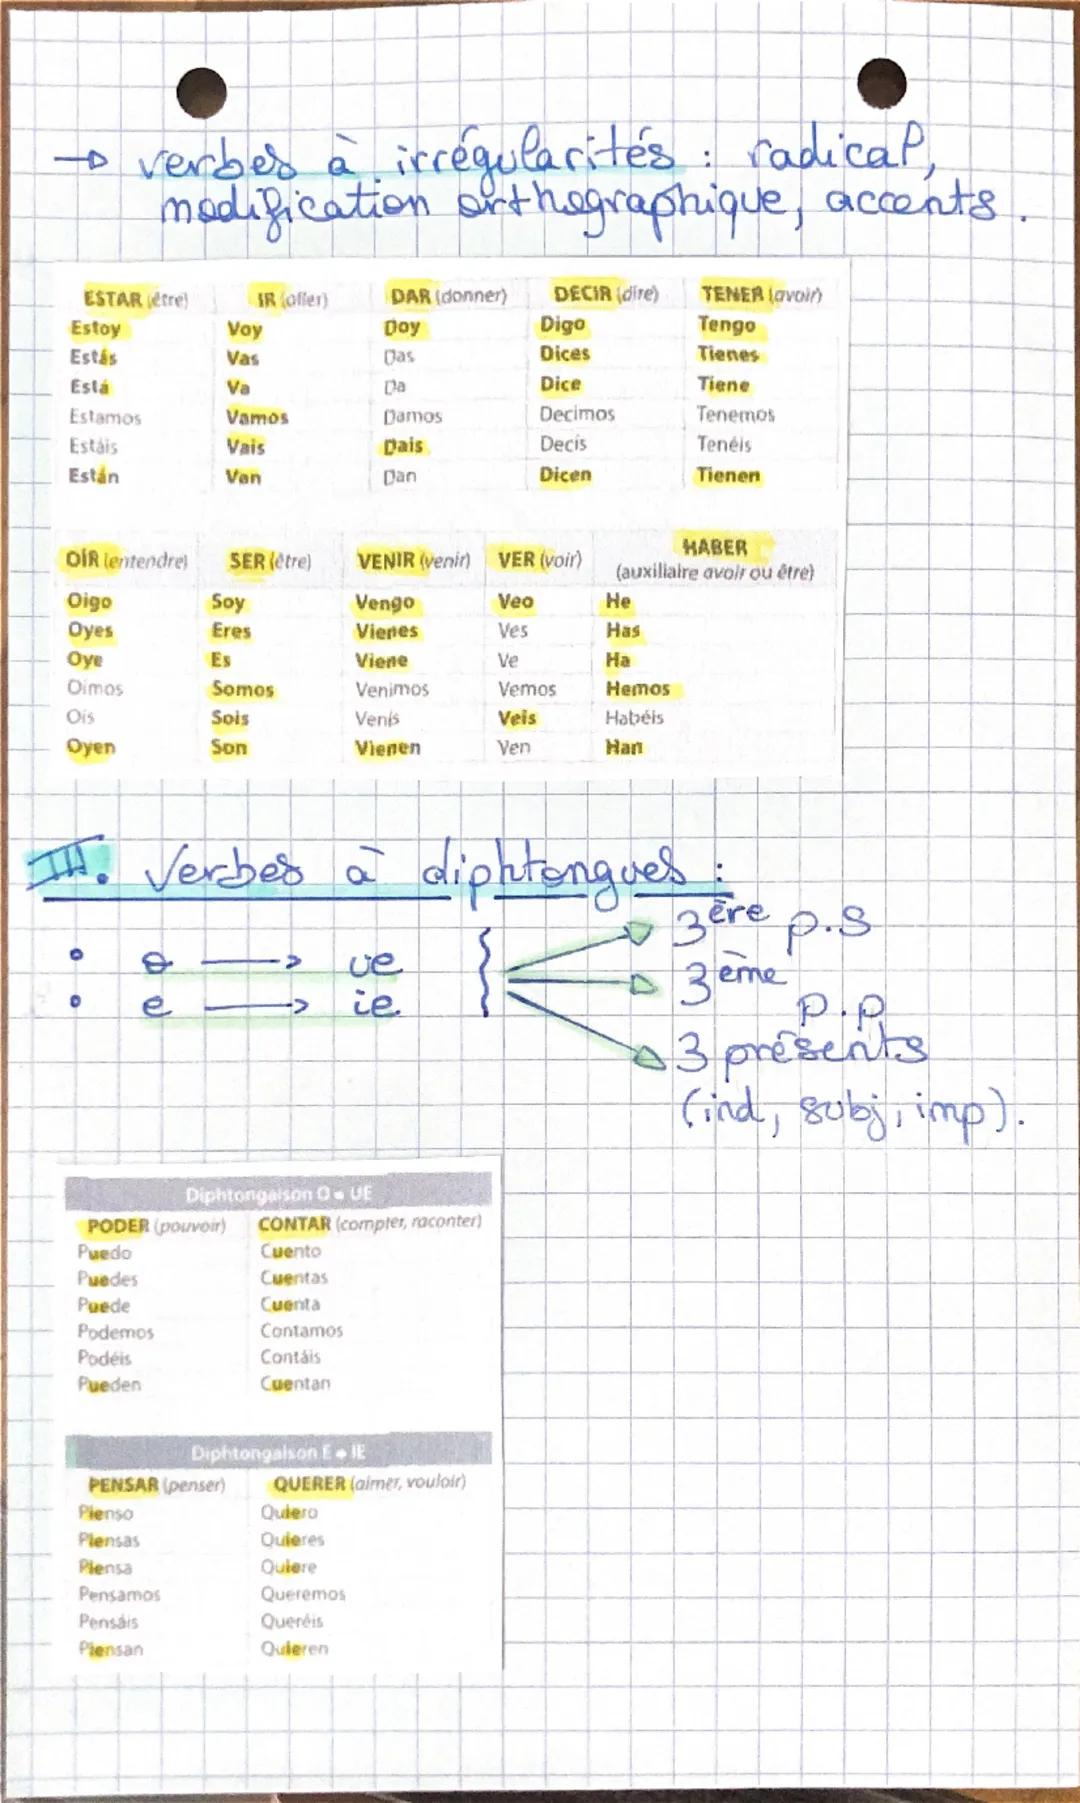 → verbes à irrégularités : radical,
modification orthographique, accents.
ESTAR (être) IR (aller) DAR (donner) DECIR (dire) TENER (avoir)
Estoy Voy Doy Digo Tengo
Estás Vas Das Dices Tienes
Está Va Da Dice Tiene
Estamos Vamos Damos Decimos Tenemos
Estáis Vais Dais Decís Tenéis
Están Van Dan Dicen Tienen
OÍR (entendre) SER (être) VENIR (venir) VER (voir) HABER
(auxiliaire avoir ou être)
Oigo Soy Vengo Veo He
Oyes Eres Vienes Ves Has
Oye Es Viene Ve Ha
Oímos Somos Venimos Vemos Hemos
Oís Sois Venís Veis Habéis
Oyen Son Vienen Ven Han
III. Verbes à diphtongues :
• o → ue
• e → ie
3ère p.s
3ème
p.p
3 présents
(ind, subj, imp).
Diphtongaison O → UE
PODER (pouvoir) CONTAR (compter, raconter)
Puedo Cuento
Puedes Cuentas
Puede Cuenta
Podemos Contamos
Podéis Contáis
Pueden Cuentan
Diphtongaison E → IE
PENSAR (penser) QUERER (aimer, vouloir)
Pienso Quiero
Piensas Quieres
Piensa Quiere
Pensamos Queremos
Pensáis Queréis
Piensan Quieren